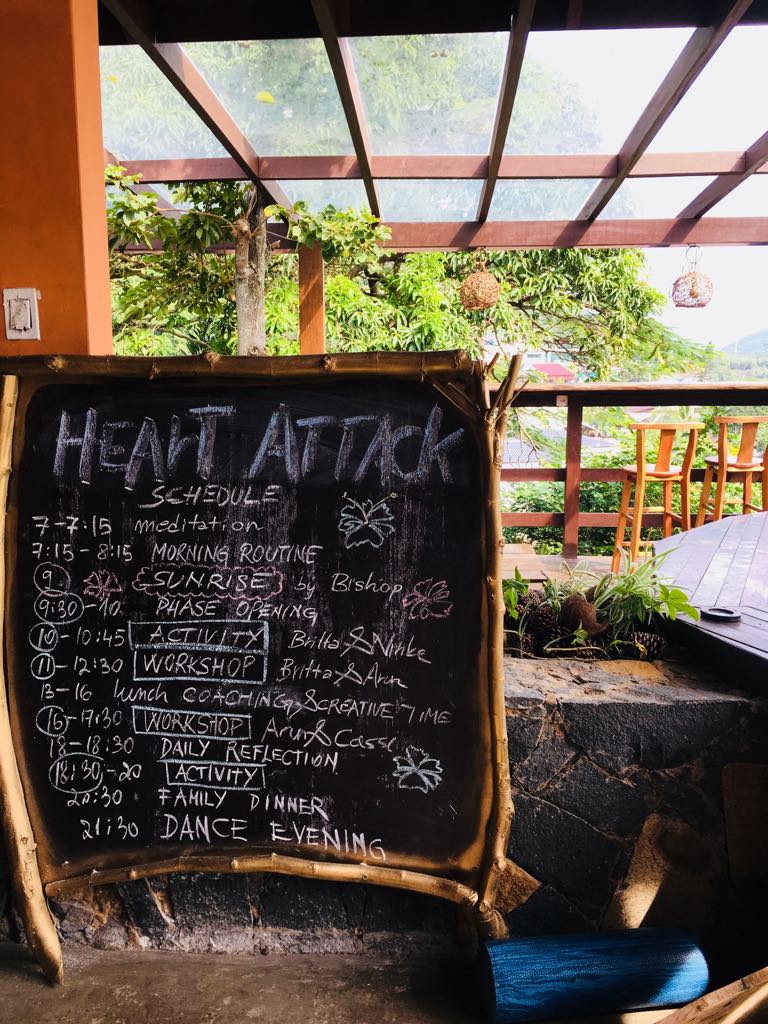 HEART ATTACK
SCHEDULE
7-7:15 meditation
7:15 - 8:15 MORNING ROUTINE
9 SUNRISE by Bishop
9:30-10 PHASE OPENING
10-10:45 ACTIVITY Britta & Ninke
11-12:30 WORKSHOP Britta & Arun
13-16 lunch COACHING & CREATIVE TIME
16-17:30 WORKSHOP Arun & Cassi
18-18:30 DAILY REFLECTION
18:30-20 ACTIVITY
20:30 FAMILY DINNER
21:30 DANCE EVENING